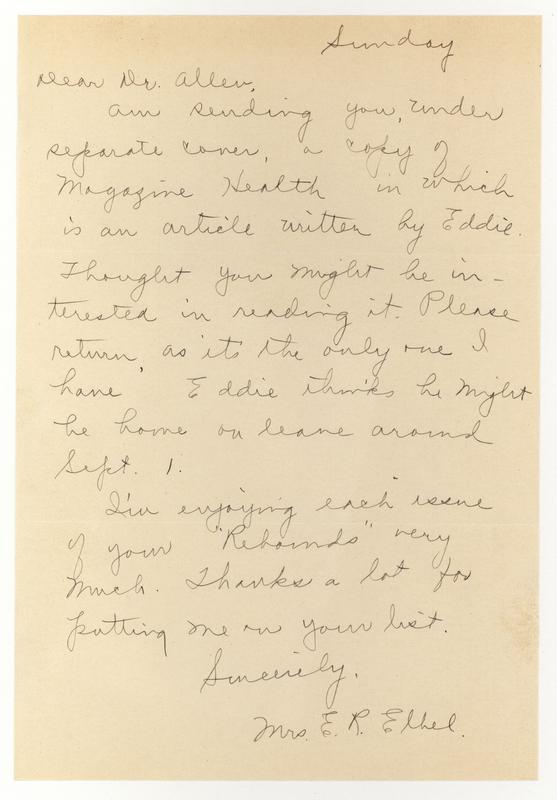 Sunday
Dear Dr. Allen,
Am sending you, under
separate cover, a copy of
Magazine Health in which
is an article written by Eddie.
Thought you might be in-
terested in reading it. Please
return, as it's the only one I
have. Eddie thinks he might
be home on leave around
Sept. 1.
I'm enjoying each issue
of your "Rebounds" very
much. Thanks a lot for
putting me on your list.
Sincerely,
Mrs. E. R. Elbel.